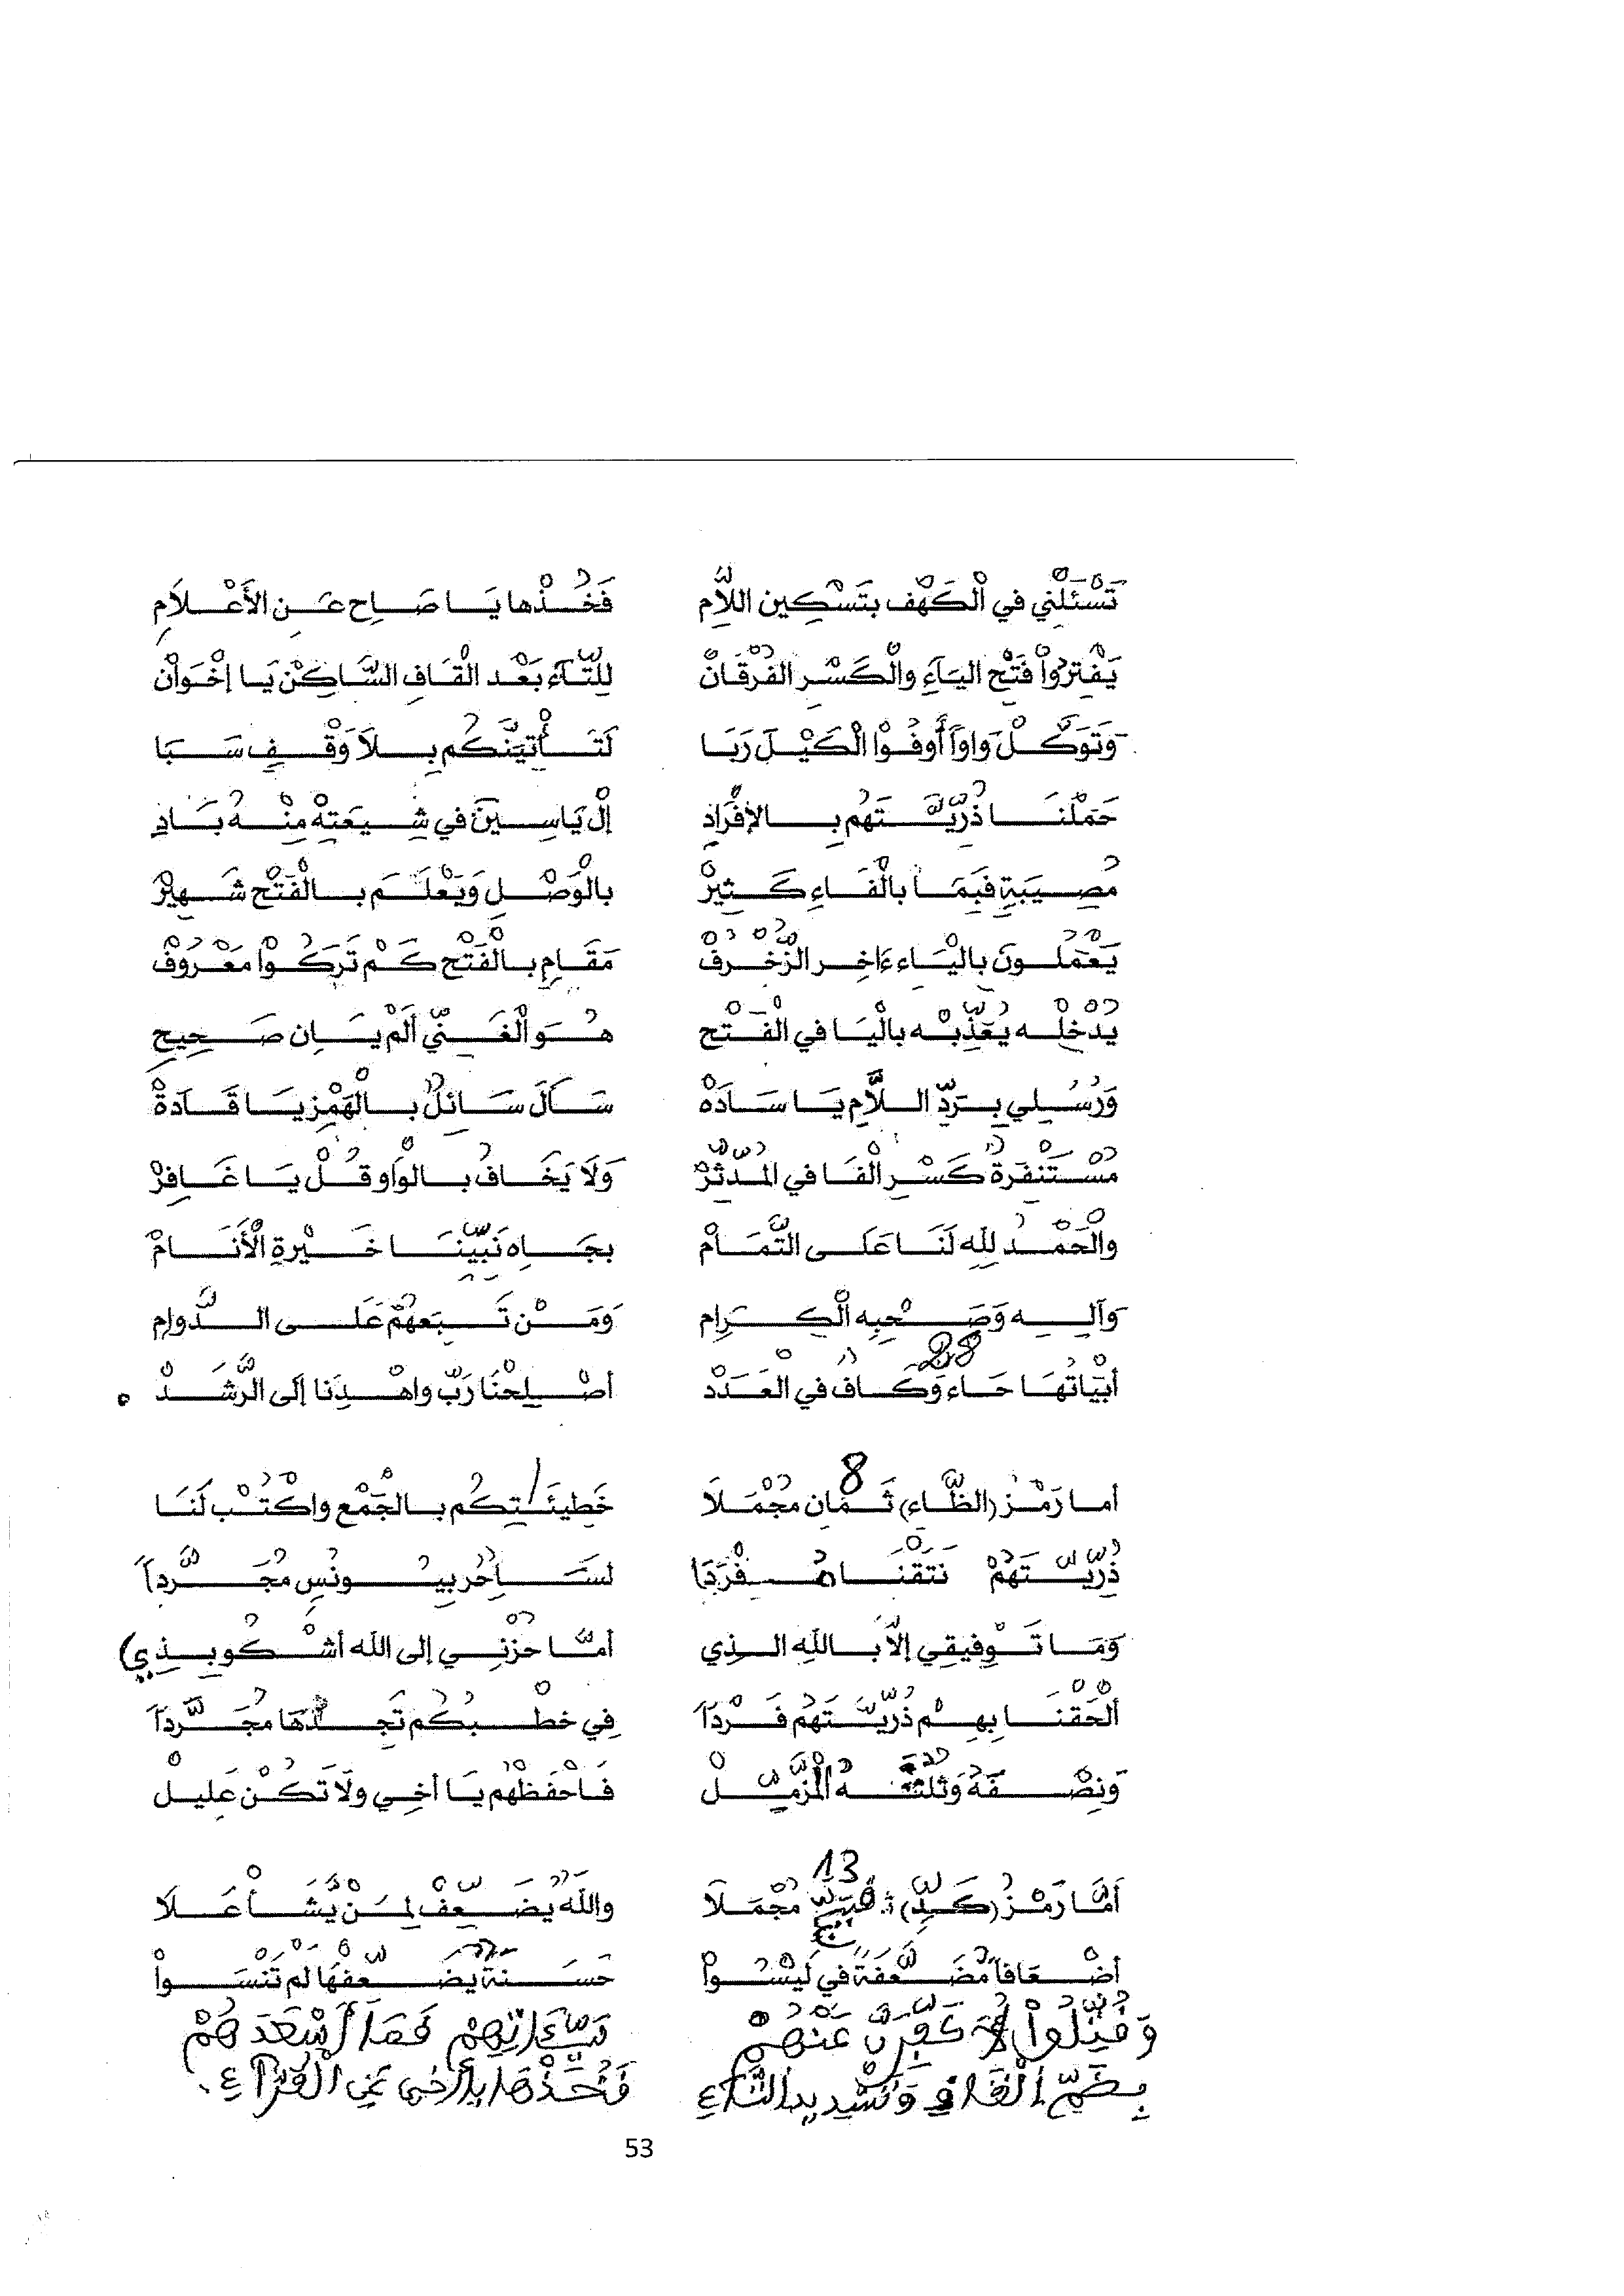 تَسْئَلْنِي في الْكَهْف بتَسْكِين اللَّام فَخُذْها يَا صَاحِ عَنِ الأَعْلَامِ
يَفْتِرُواْ فَتْح اليَاءِ والْكَسْرِ الفُرْقَانْ لِلتَّاءِ بَعْدَ الْقَافِ السَّاكِنْ يَا إخْوَانْ
وَتَوَكَّلْ وَاواً أَوْفُوْا الْكَيْلَ رَبَا لَتَأْتِيَنَّكُم بِلَا وَقْفٍ سَبَا
حَمَلْنَا ذُرِّيَّتَهُم بِالإفْرَادِ إلْ يَاسِينَ في شِيعَتِهْ مِنْهُ بَادِ
مُصِيبَةٍ فَبِمَا بالْفَاءِ كَثِيرْ بالْوَصْلِ وَيَعْلَمَ بالْفَتْح شَهِيرْ
يَعْمَلُونَ بالْيَاء ءَاخِر الزُّخْرفْ مَقَامٍ بالْفَتْح كَمْ تَرَكُواْ مَعْرُوفْ
يُدْخِلْه يُعَذِّبْه بالْيَا في الْفَتْح هُوَ الْغَنِيّ أَلَمْ يَانِ صَحِيحِ
وَرُسُلِي بِرَدِّ اللَّام يَا سَادَهْ سَالَ سَائِلٌ بالْهَمْزِ يَا قَادَةْ
مُسْتَنْفِرَةٌ كَسْرِ الْفَا في المُدَّثِّرْ وَلَا يَخَافُ بالْوَاو قُلْ يَا غَافِرْ
والْحَمْدُ لِلهِ لَنَا عَلَى التَّمَامْ بِجَاهِ نَبِيِّنَا خَيْرةِ الْأَنَامْ
وَآلِهِ وَصَحْبِهِ الْكِرَامِ وَمَنْ تَبَعَهُمْ عَلَى الدَّوامِ
28
أَبْيَاتُهَا حَاء وَكَافٌ في الْعَدَدْ أصْلِحْنَا رَبّ واهْدِنَا إلَى الرَّشَدْ
8
أما رَمْزُ (الظَّاء) ثَمَان مُجْمَلَا خَطِيئَاتِكُم بالجَمْع واكْتُبْ لَنَا
ذُرِّيَّتَهُمْ نَتَقْنَا مُفْرَدَا لسَاحِرٌ بِيُونُسِ مُجَرَّداً
وَمَا تَوْفِيقِي إلَّا بالله الذِي أمَّا حُزْنِي إلى الله أشْكُو بِذِي)
أَلْحَقْنَا بِهِمْ ذُرِّيَّتَهُم فَرْدَا فِي خَطْبُكُم تَجِدُهَا مُجَرَّدَا
وَنِصْفَهُ وَثُلُثَهُ المُزَّمِّلْ فَاحْفَظْهُم يَا أخِي ولَا تَكُنْ عَلِيلْ
13
أَمَّا رَمْزُ (كَدٍّ) مُجْمَلَا والله يُضَعِّفْ لِمَنْ يَّشَأْ عَلَا
أضْعَافاً مُضَعَّفَةً في لَيْسُواْ حَسَنَةً يُضَعِّفْهَا لَم تَنْسَواْ
وَقُتِّلُواْ لَأُكَفِّرَنَّ عَنْهُمْ سَيِّـَٔاتِهِمْ فَمَا أَسْعَدَهُمْ
بِضَمِّ الْقَافِ وَتَشْدِيدِ التَّاءِ فَخُذْهَا يَا أَخِى عَنِ الْقُرَّاءِ.
53